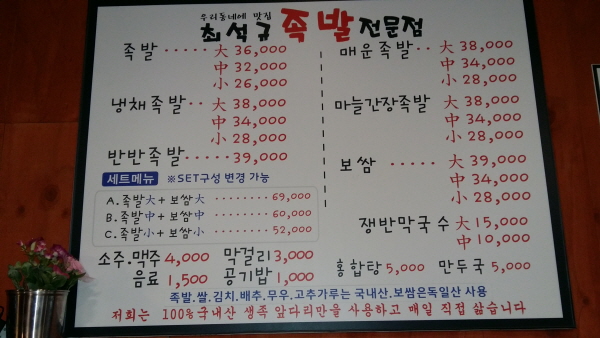 우리동네에 맛집
최석규 족발 전문점
족발 ····· 大 36,000
中 32,000
小 26,000
냉채족발 ·· 大 38,000
中 34,000
小 28,000
반반족발 ····· 39,000
세트메뉴 ※SET구성 변경 가능
A.족발大 + 보쌈大 ········ 69,000
B.족발中 + 보쌈中 ········ 60,000
C.족발小 + 보쌈小 ········ 52,000
소주·맥주 4,000 막걸리 3,000
음료 1,500 공기밥 1,000
매운족발 ·· 大 38,000
中 34,000
小 28,000
마늘간장족발 大 38,000
中 34,000
小 28,000
보쌈 ····· 大 39,000
中 34,000
小 28,000
쟁반막국수 大 15,000
中 10,000
홍합탕 5,000 만두국 5,000
족발.쌀.김치.배추.무우.고추가루는 국내산.보쌈은독일산 사용
저희는 100%국내산 생족 앞다리만을 사용하고 매일 직접 삶습니다